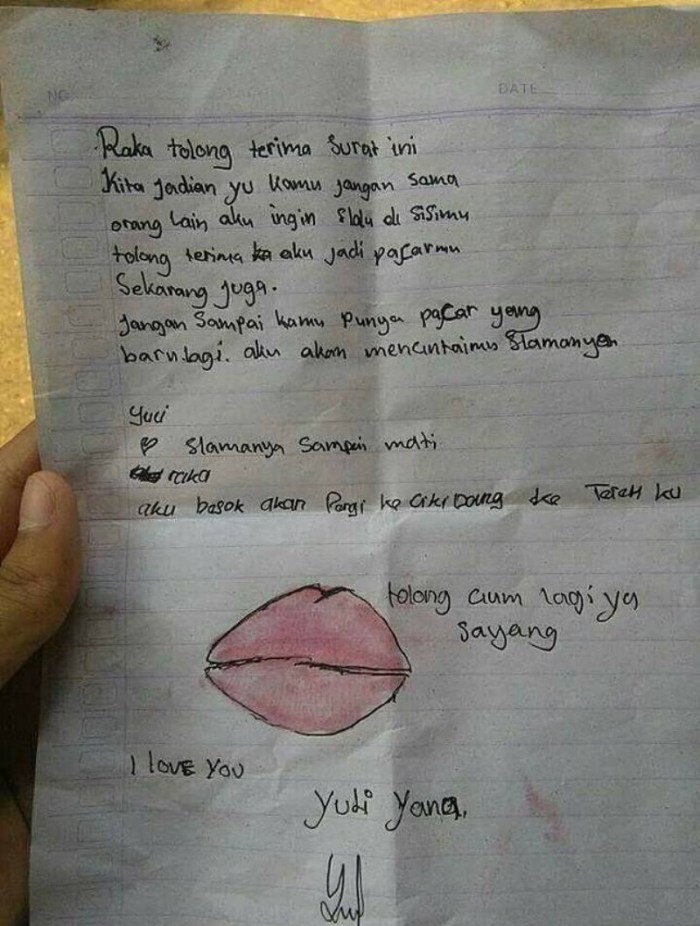 NO.
DATE
Raka tolong terima surat ini
Kita jadian yu kamu jangan sama
orang lain aku ingin slalu di sisimu
tolong terima aku jadi pacarmu
Sekarang juga.
jangan sampai kamu punya pacar yang
baru lagi. aku akan mencintaimu slamanya
yuli
slamanya sampai mati
raka
aku besok akan Pergi ke
tolong cium lagi ya
sayang
I love You
yuli yana.